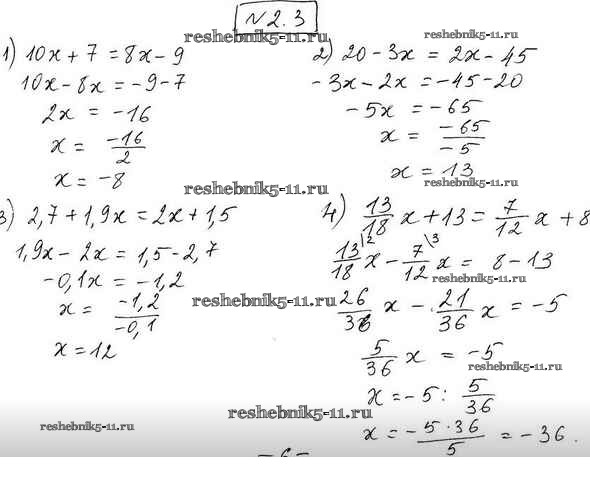 N 2.3
reshebnik5-11.ru
reshebnik5-11.ru
1) 10x + 7 = 8x - 9
10x - 8x = -9 - 7
2x = -16
x = -16/2
x = -8
2) 20 - 3x = 2x - 45
-3x - 2x = -45 - 20
-5x = -65
x = -65/-5
x = 13
reshebnik5-11.ru
reshebnik5-11.ru
3) 2,7 + 1,9x = 2x + 1,5
1,9x - 2x = 1,5 - 2,7
-0,1x = -1,2
x = -1,2/-0,1
x = 12
4) 13/18 x + 13 = 7/12 x + 8
13\2/18 x - 7\3/12 x = 8 - 13
26/36 x - 21/36 x = -5
5/36 x = -5
x = -5 : 5/36
x = - 5·36/5 = -36.
reshebnik5-11.ru
reshebnik5-11.ru
reshebnik5-11.ru
reshebnik5-11.ru
reshebnik5-11.ru